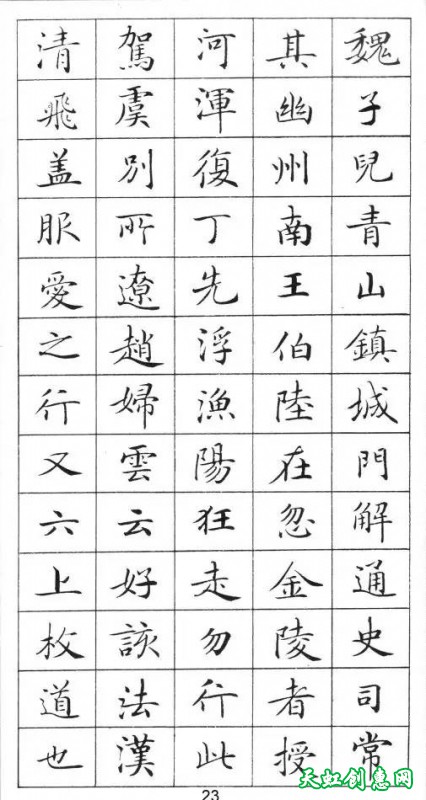 魏子兒青山鎮城門解通史司常
其幽州南王伯陸在忽金陵者授
河渾復丁先浮漁陽狂走勿行此
駕虞別所遼趙婦雲云好該法漢
清飛盖服愛之行又六上枚道也
23
天虹创意网